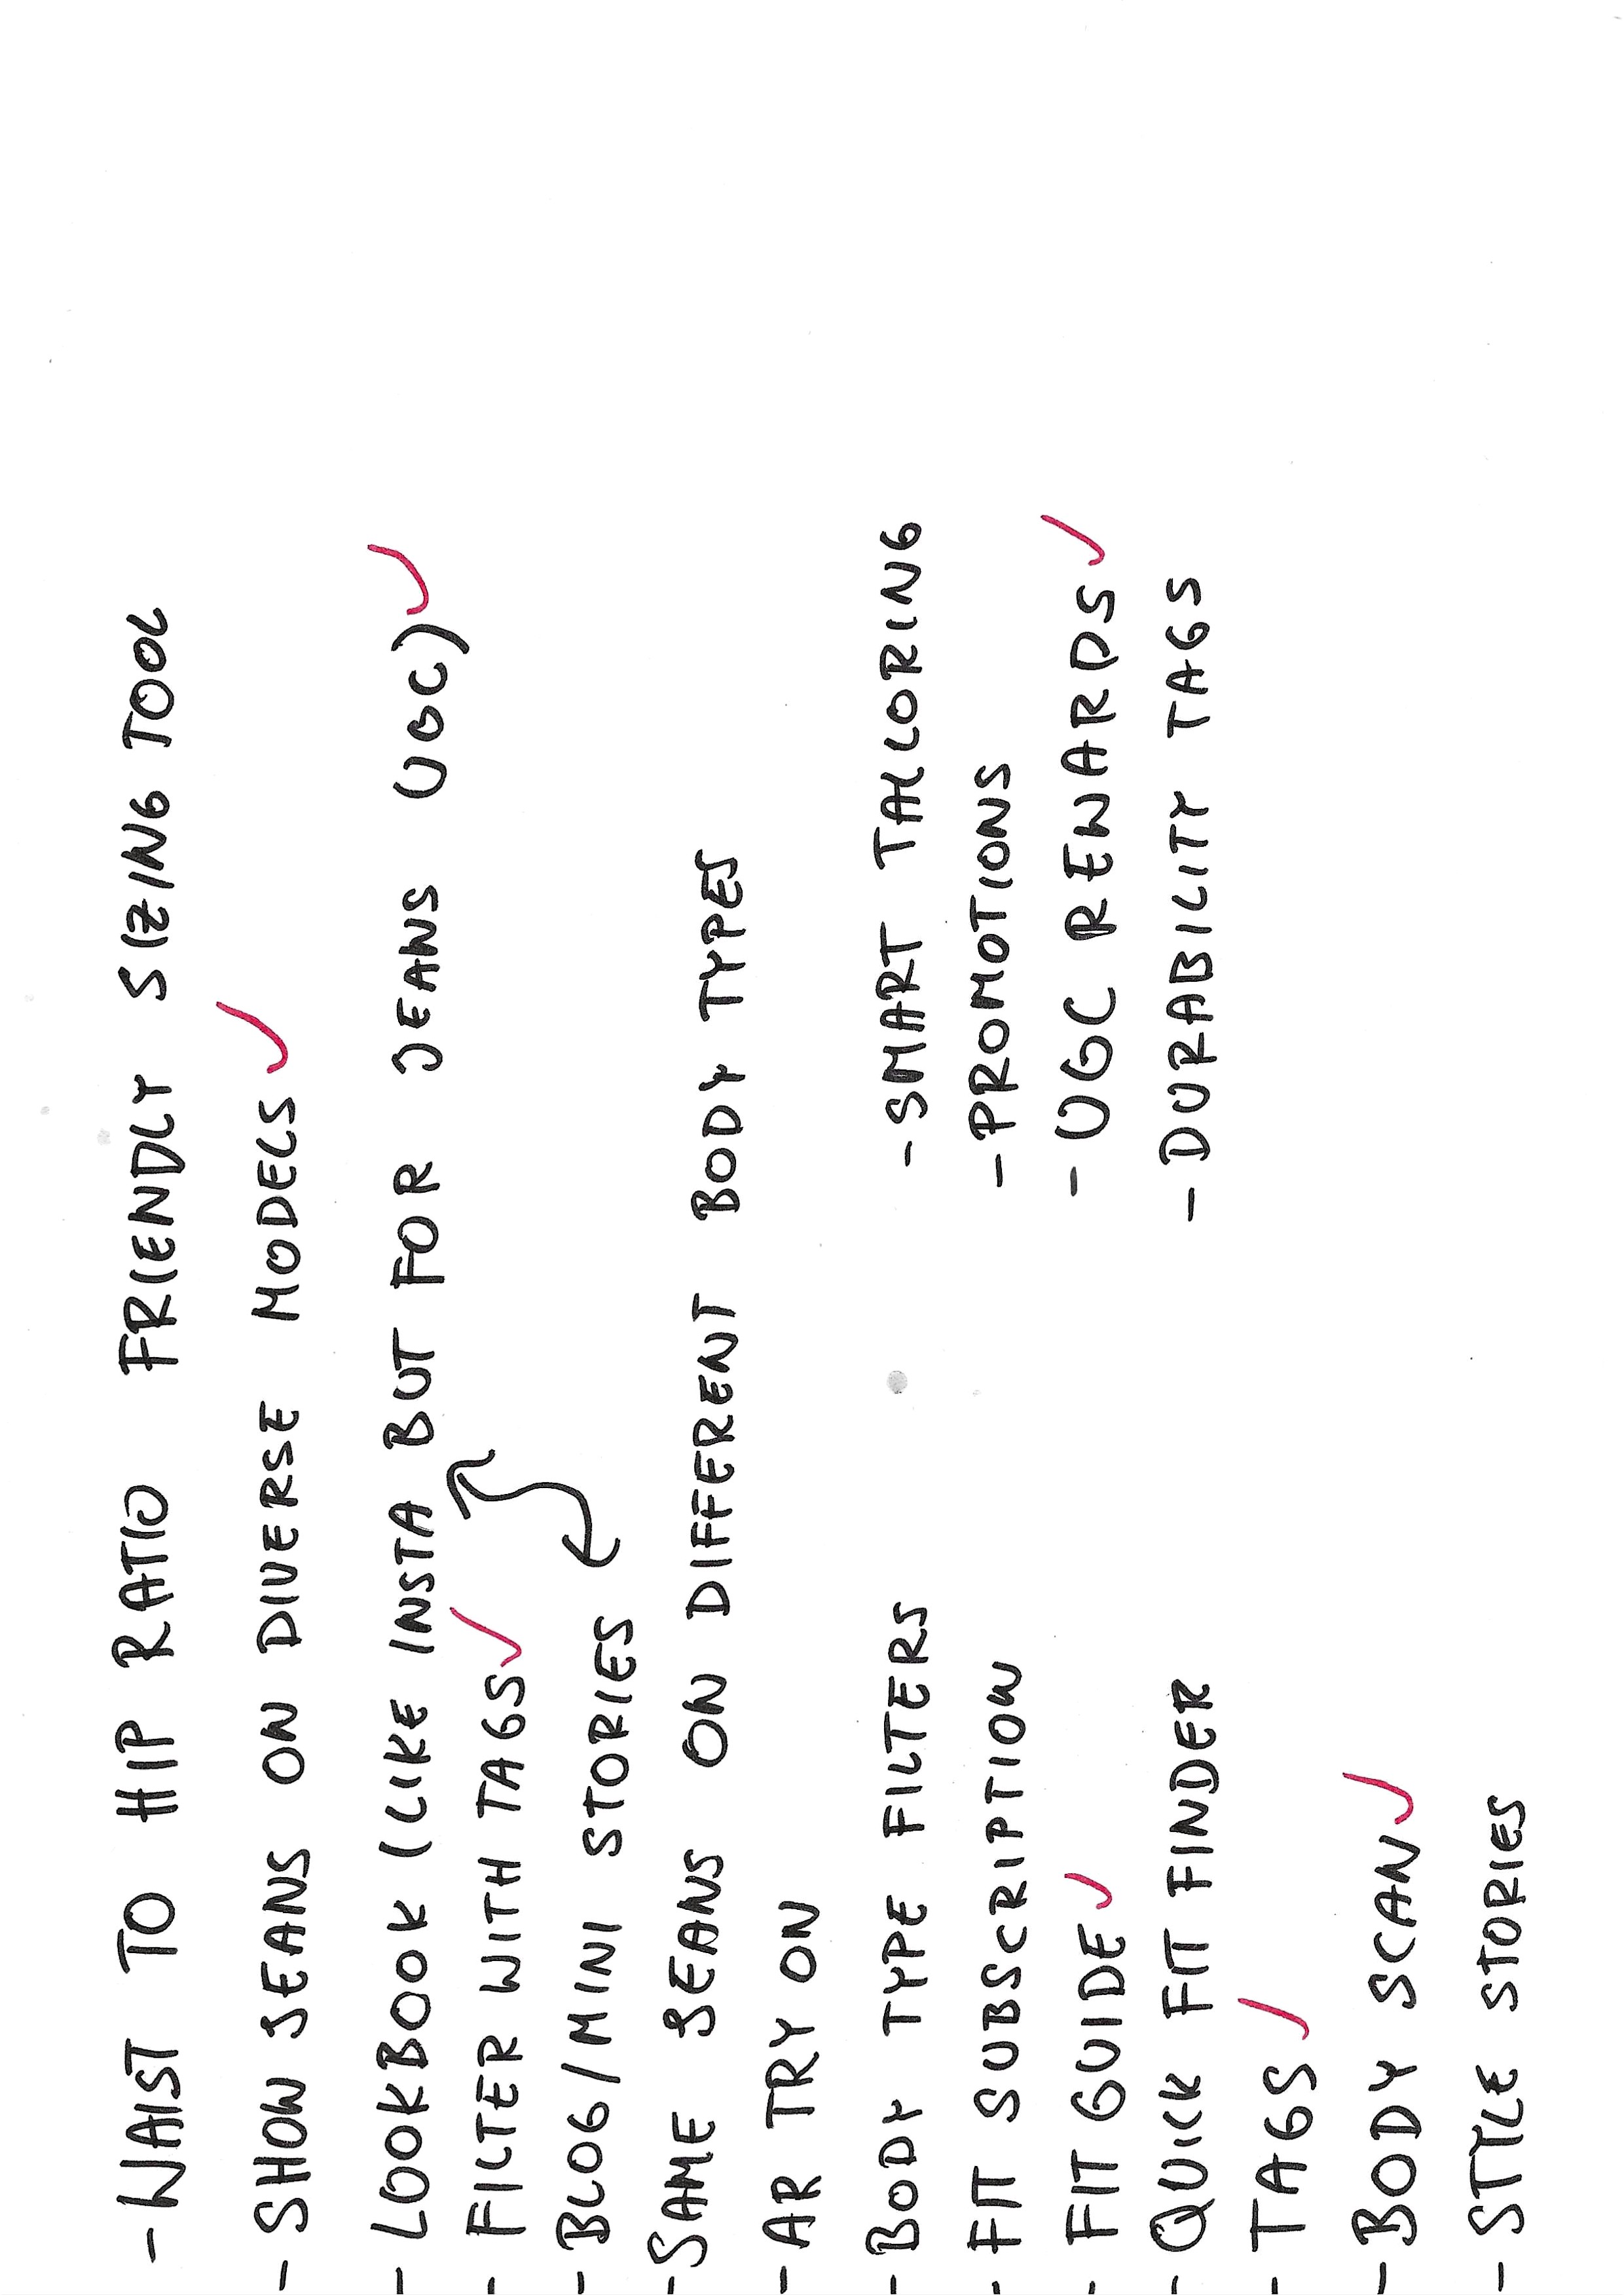 - WAIST TO HIP RATIO FRIENDLY SIZING TOOL
- SHOW JEANS ON DIVERSE MODELS ✓
- LOOKBOOK (LIKE INSTA BUT FOR JEANS UGC) ✓
- FILTER WITH TAGS ✓
- BLOG/MINI STORIES
- SAME JEANS ON DIFFERENT BODY TYPES
- AR TRY ON
- BODY TYPE FILTERS
- FIT SUBSCRIPTION
- FIT GUIDE ✓
- QUICK FIT FINDER
- TAGS ✓
- BODY SCAN ✓
- STYLE STORIES
- SMART TAILORING
- PROMOTIONS
- UGC REWARDS ✓
- DURABILITY TAGS